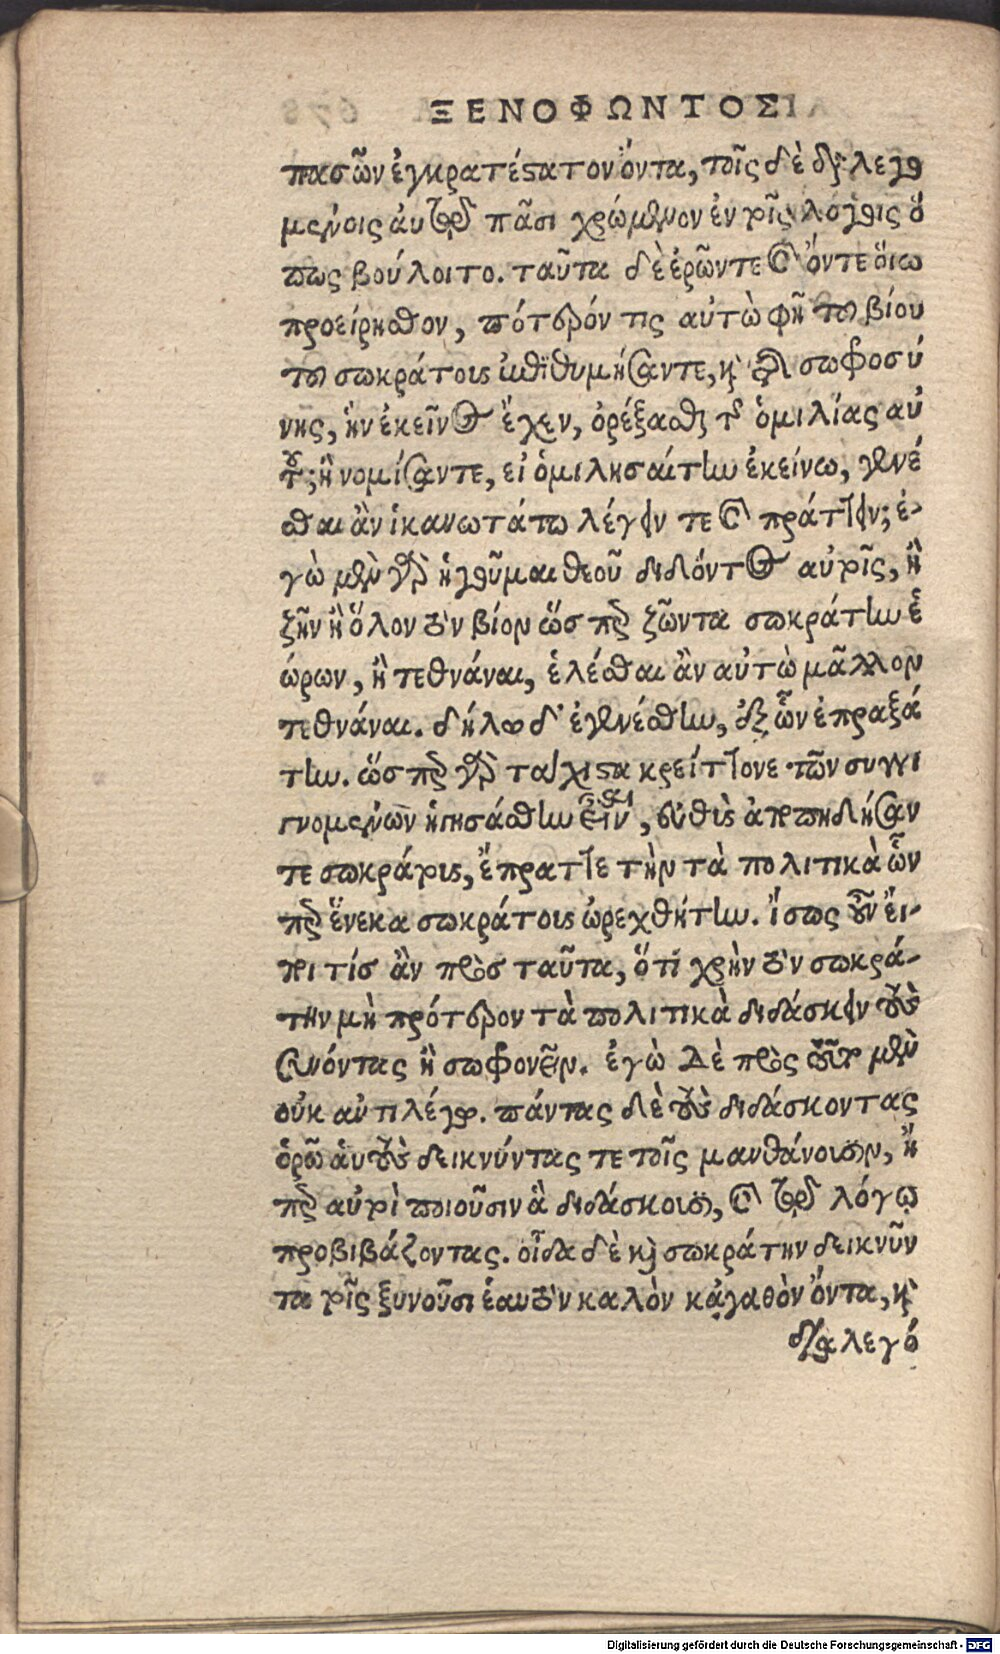 ΞΕΝΟΦΩΝΤΟΣ
πασῶν ἐγκρατέστατον ὄντα, τοῖς δὲ διαλεγο
μένοις αὐτῷ πᾶσι χρώμενον ἐν τοῖς λόγοις ὅ
πως βούλοιτο. ταῦτα δὲ ἑρῶντε καὶ ὄντε οἵω
προείρησθον, πότερόν τις αὐτὼ φῇ τοῦ βίου
τοῦ σωκράτους ἐπιθυμήσαντε, καὶ τῆς σωφροσύ
νης, ἣν ἐκεῖνος ἔχεν, ὀρέξασθαι τῆς ὁμιλίας αὐ
τοῦ; ἢ νομίσαντε, εἰ ὁμιλησαίτην ἐκείνω, γενέ
σθαι ἂν ἱκανωτάτω λέγειν τε καὶ πράττειν; ἐ-
γὼ μὲν γὰρ ἡγοῦμαι θεοῦ διδόντος αὐτοῖς, ἢ
ζῆν ἢ ὅλον τὸν βίον ὥσπερ ζῶντα σωκράτην ἑ
ώρων, ἢ τεθνάναι, ἑλέσθαι ἂν αὐτὼ μᾶλλον
τεθνάναι. δήλω δ' ἐγενέσθην, ἐξ ὧν ἐπραξά
την. ὥσπερ γὰρ τάχιστα κρείττονε τῶν συγγι
γνομένων ἡγησάσθην εἶναι, εὐθὺς ἀποπηδήσαν
τε σωκράτους, ἔπραττε τὴν τὰ πολιτικὰ ὧν
περ ἕνεκα σωκράτους ὠρεχθήτην. ἴσως οὖν εἴ-
ποι τίς ἂν πρὸς ταῦτα, ὅτι χρῆν τὸν σωκρά-
την μὴ πρότερον τὰ πολιτικὰ διδάσκειν τοὺς
συνόντας ἢ σωφρονεῖν. ἐγὼ δὲ πρὸς τοῦτο μὲν
οὐκ αντιλέγω. πάντας δὲ τοὺς διδάσκοντας
ὁρῶ αὑτοὺς δεικνύντας τε τοῖς μανθάνουσιν, ᾗ
περ αὐτοὶ ποιοῦσιν ἃ διδάσκουσι, καὶ τῷ λόγῳ
προβιβάζοντας. οἶδα δὲ καὶ σωκράτην δεικνῦν
τα τοῖς ξυνοῦσι ἑαυτὸν καλὸν κἀγαθὸν ὄντα, καὶ
διαλεγό
Digitalisierung gefördert durch die Deutsche Forschungsgemeinschaft - DFG